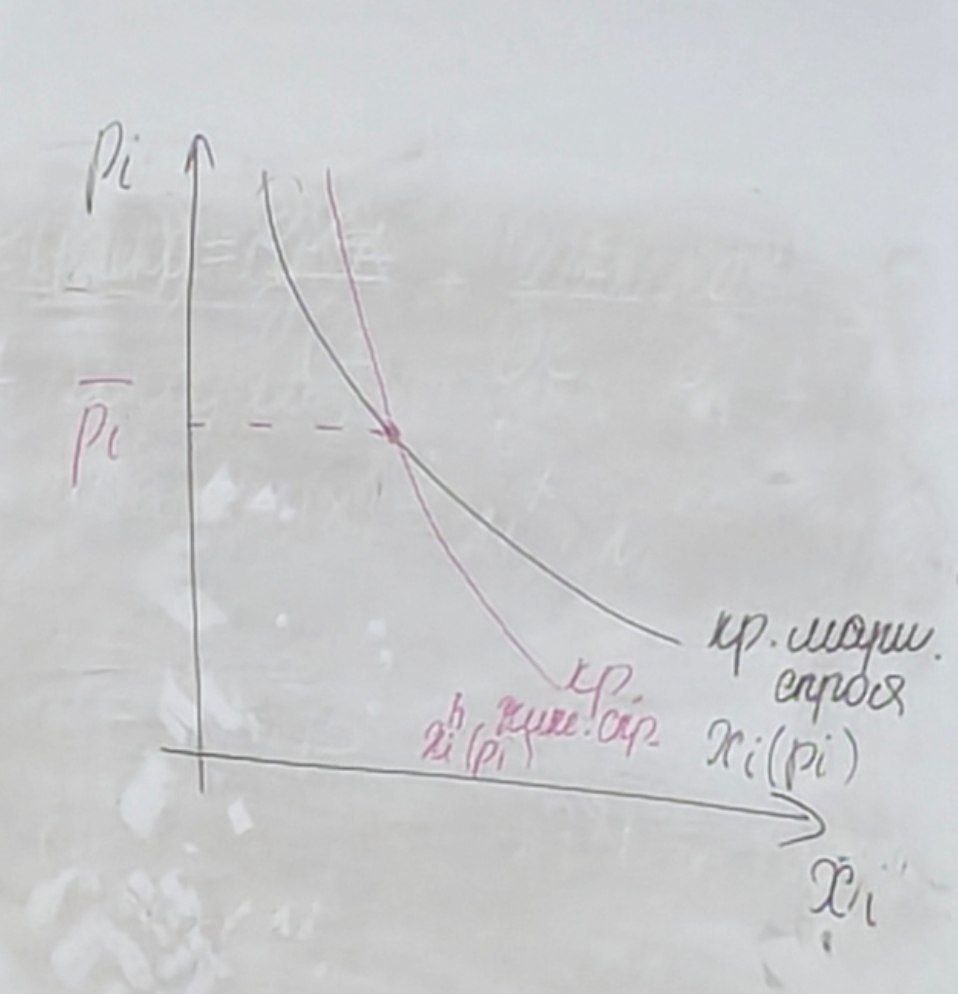 pᵢ
p̅ᵢ
кр. марш.
спроса
xᵢ(pᵢ)
кр.
хикс. спр.
xᵢʰ(pᵢ)
xᵢ